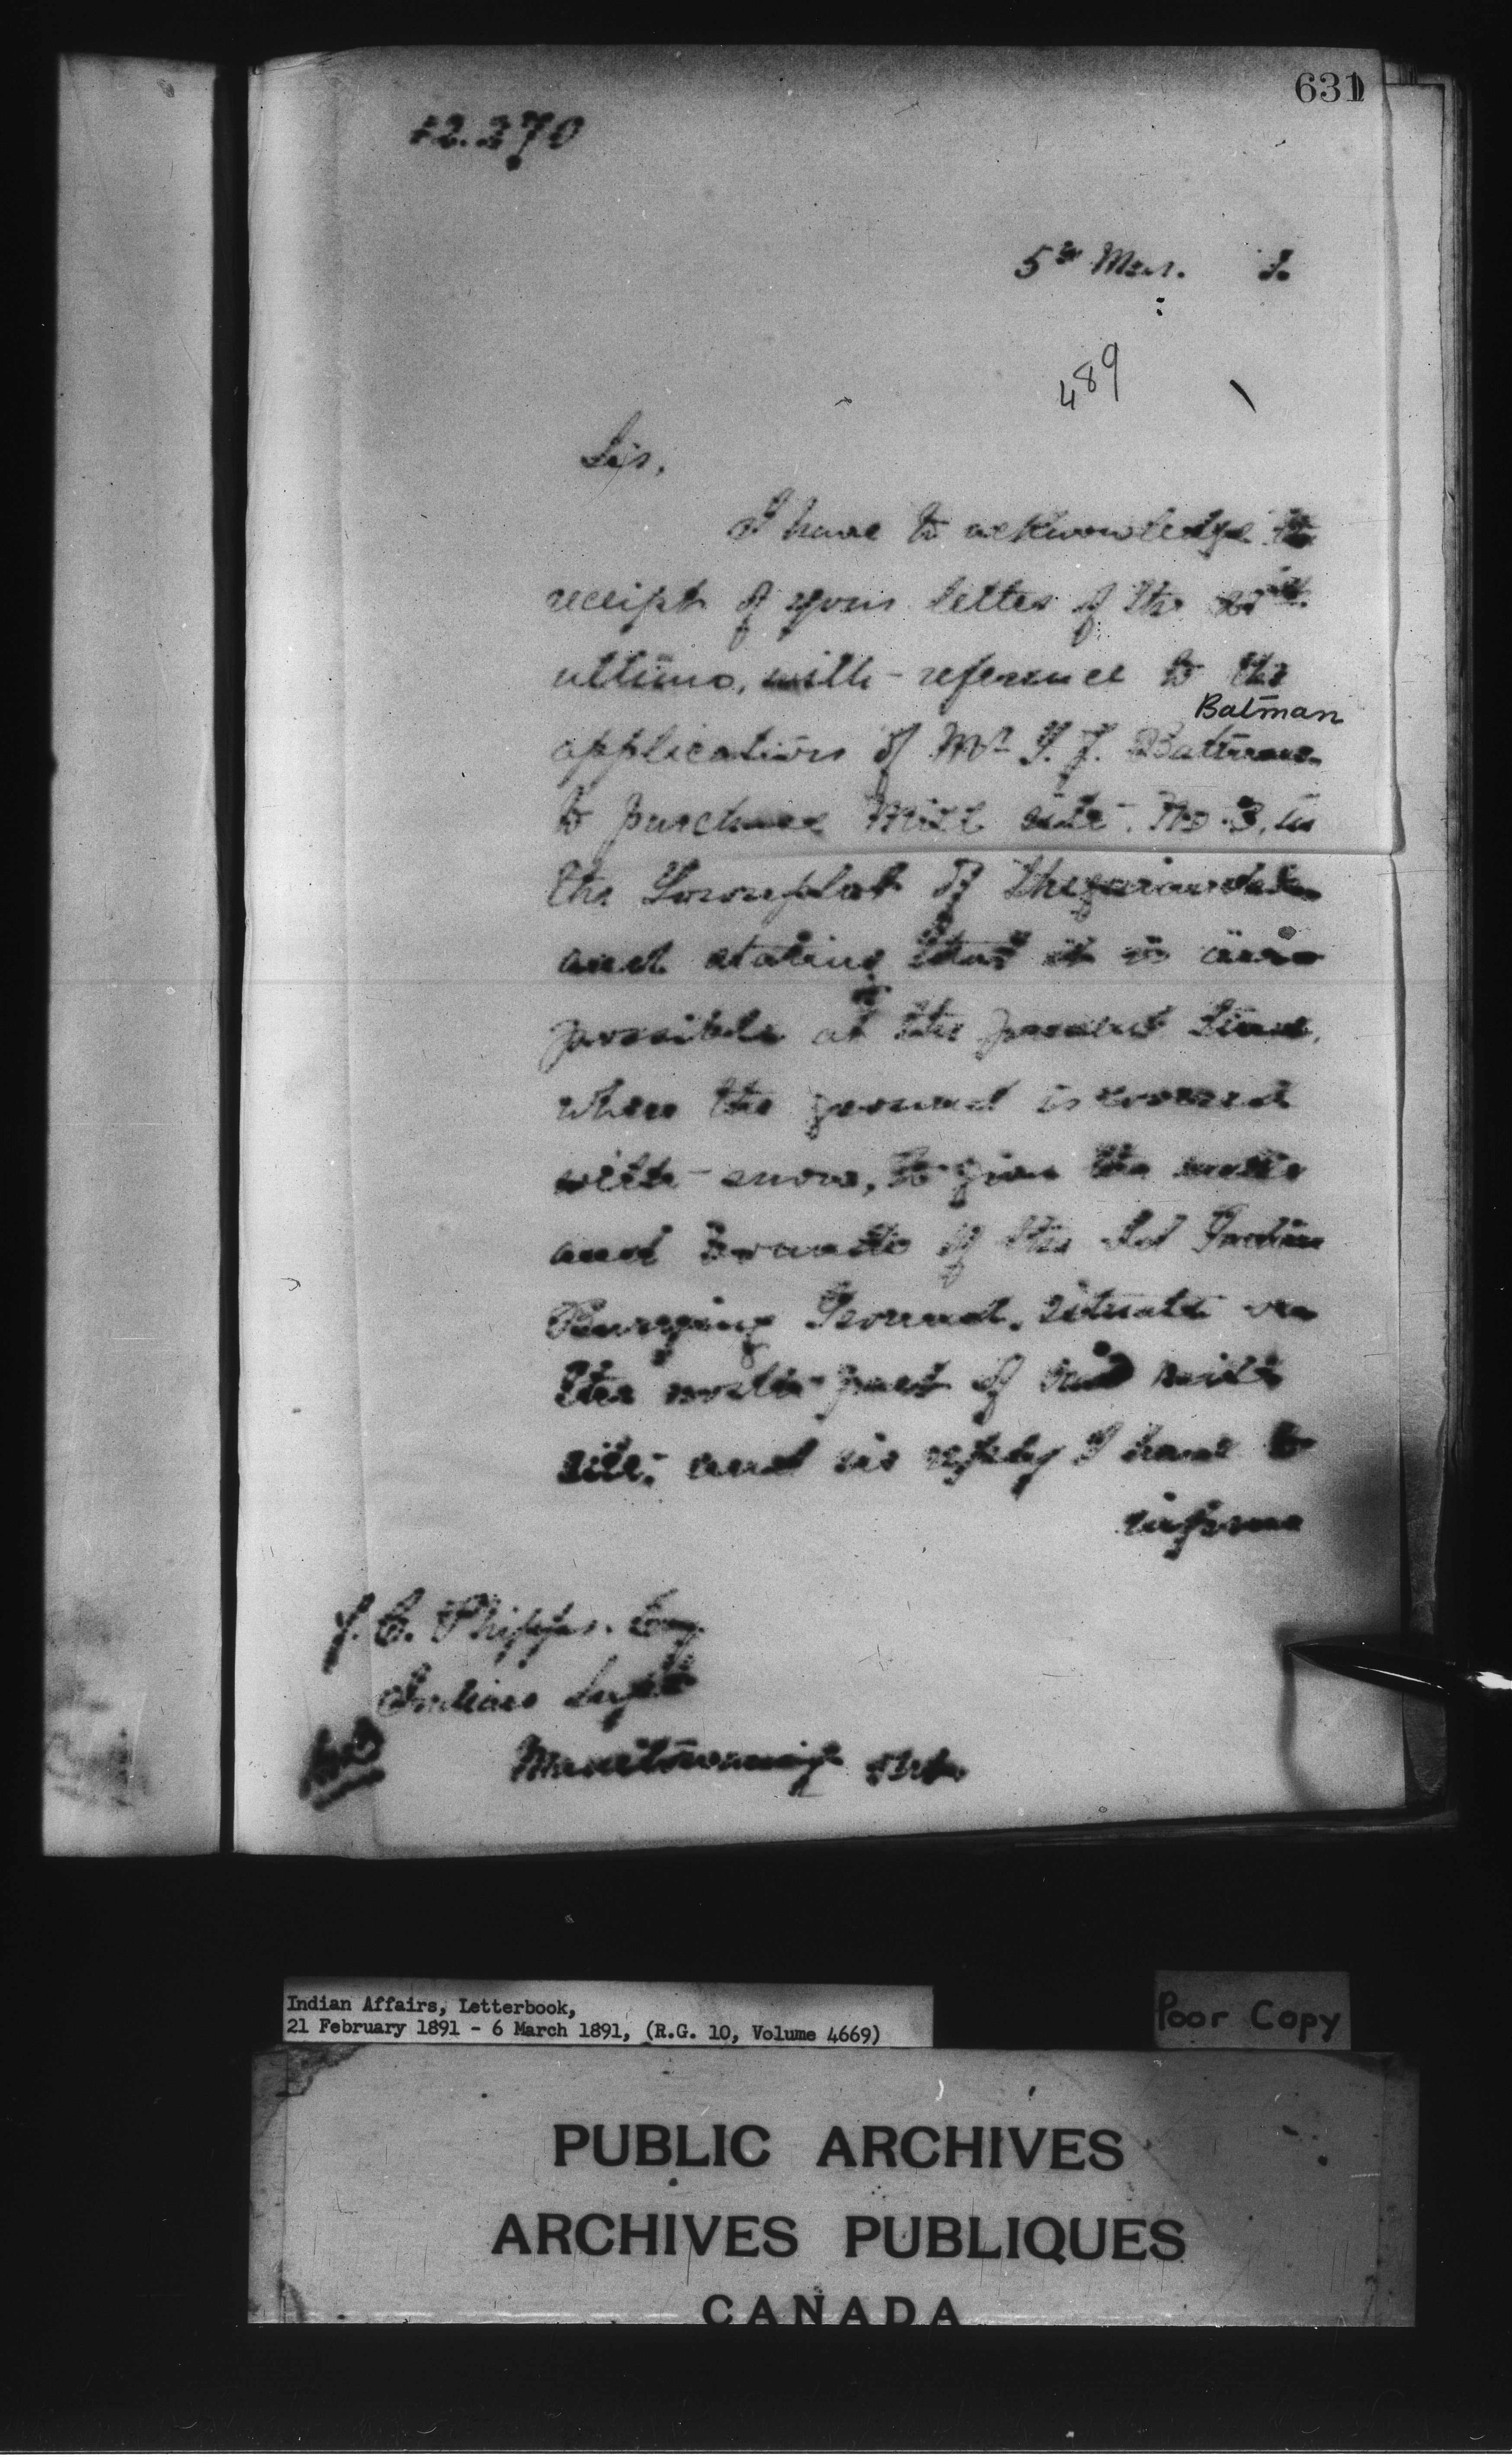 631
12.270
5th Mar. 1.
489
Sir,
I have to acknowledge the
receipt of your letter of the
ultimo, with reference to the
Batman
application of Mr T. J. Battman
to purchase Mill site No. 3, in
the Townplot of Shequiandah
and stating that it is im
possible at the present time,
when the ground is covered
with snow, to give the metes
and bounds of the Old Indian
Burying Ground, situate on
the north part of said mill
site; and in reply I have to
inform
J. C. Phipps. Esq.
Indian Supt
Manitowaning Ont.
Indian Affairs, Letterbook,
21 February 1891 - 6 March 1891, (R.G. 10, Volume 4669)
Poor Copy
PUBLIC ARCHIVES
ARCHIVES PUBLIQUES
CANADA